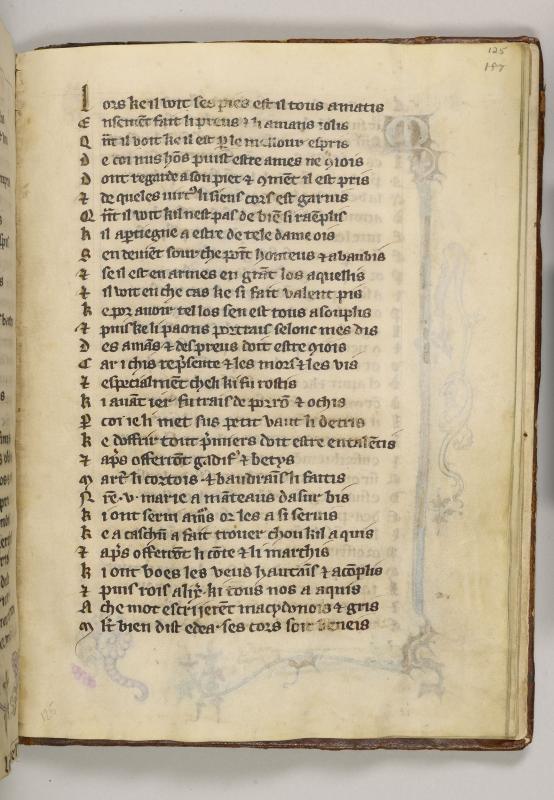 125
Lors ke il voit ses pies est il tous amatis
Ensemēt fait li preus ⁊ li amans iolis
Qn̄t il voit ke il est p̱ le millour espris
De coi nus hōs puist estre ames ne ꝯiois
Dont regarde a son piet ⁊ ꝯmēt il est pris
⁊ de queles virtꝰ li siens cors est garnis
Qn̄t il voit kil nest pas de biē si raēplis
kil aꝑtiegne a estre de tele dame ois
Sen deuiēt sour che point honteus ⁊ abaubis
⁊ se il est en armes en grāt los aquellis
⁊ il voit en che cas ke si fait valent pis
ke por auoir tel los sen est tous asouplis
⁊ puis ke li paons portrais selonc mes dis
Des amās ⁊ des preus doit estre ꝯiois
Car ichis rep̄sente ⁊ les mors ⁊ les vis
⁊ especialmēt chels ki fu rostis
ki auāt ier fu trais de porrō ⁊ ochis
P coi ie li met sus petit vaut li detris
ke doffrir tout p̄miers doit estre entalētis
⁊ ap̄s offeront gadifˢ ⁊ betys
Marc̄ li cortois ⁊ baudrais li faitis
Ne .v. marie a manteaus dasur bis
ki ont serui am̄s or les a si seruis
ke a casch̄n a fait trouer chou kil a quis
⁊ ap̄s offeront li cōte ⁊ li marchis
ki ont voes les veus hautais ⁊ acōplis
⁊ puis rois alix̄. ki tous nos a aquis
A che mot escrijerēt macydonois ⁊ gris
Ml̄t bien dist edea. ses cors soit beneis
126